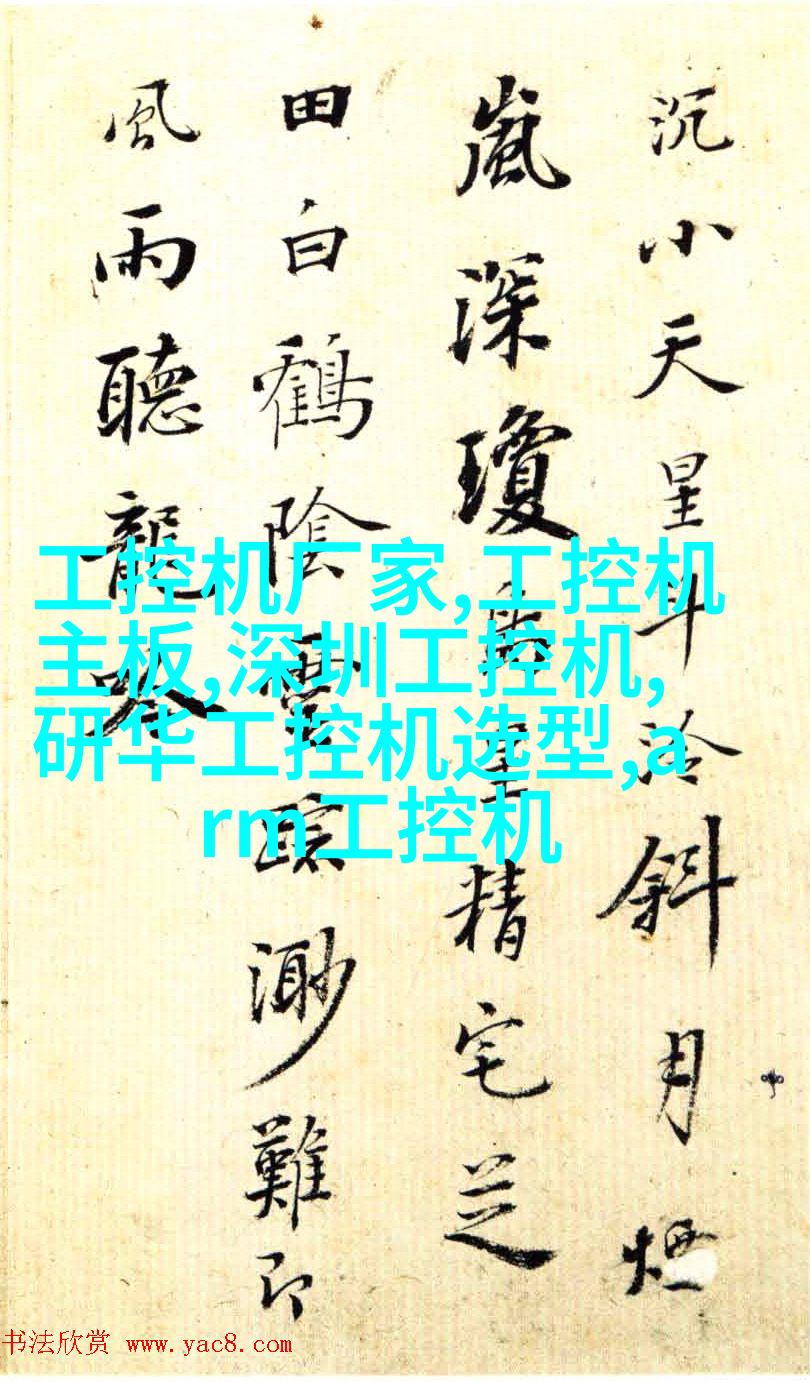 沉小天星斗冷斜月煙
嵐深瓊精宅芝
田白鶴陰渺難即
風雨聽龍吟
工控机厂家,工控机
主板,深圳工控机,
研华工控机选型,a
rm工控机
书法欣赏 www.yac8.com